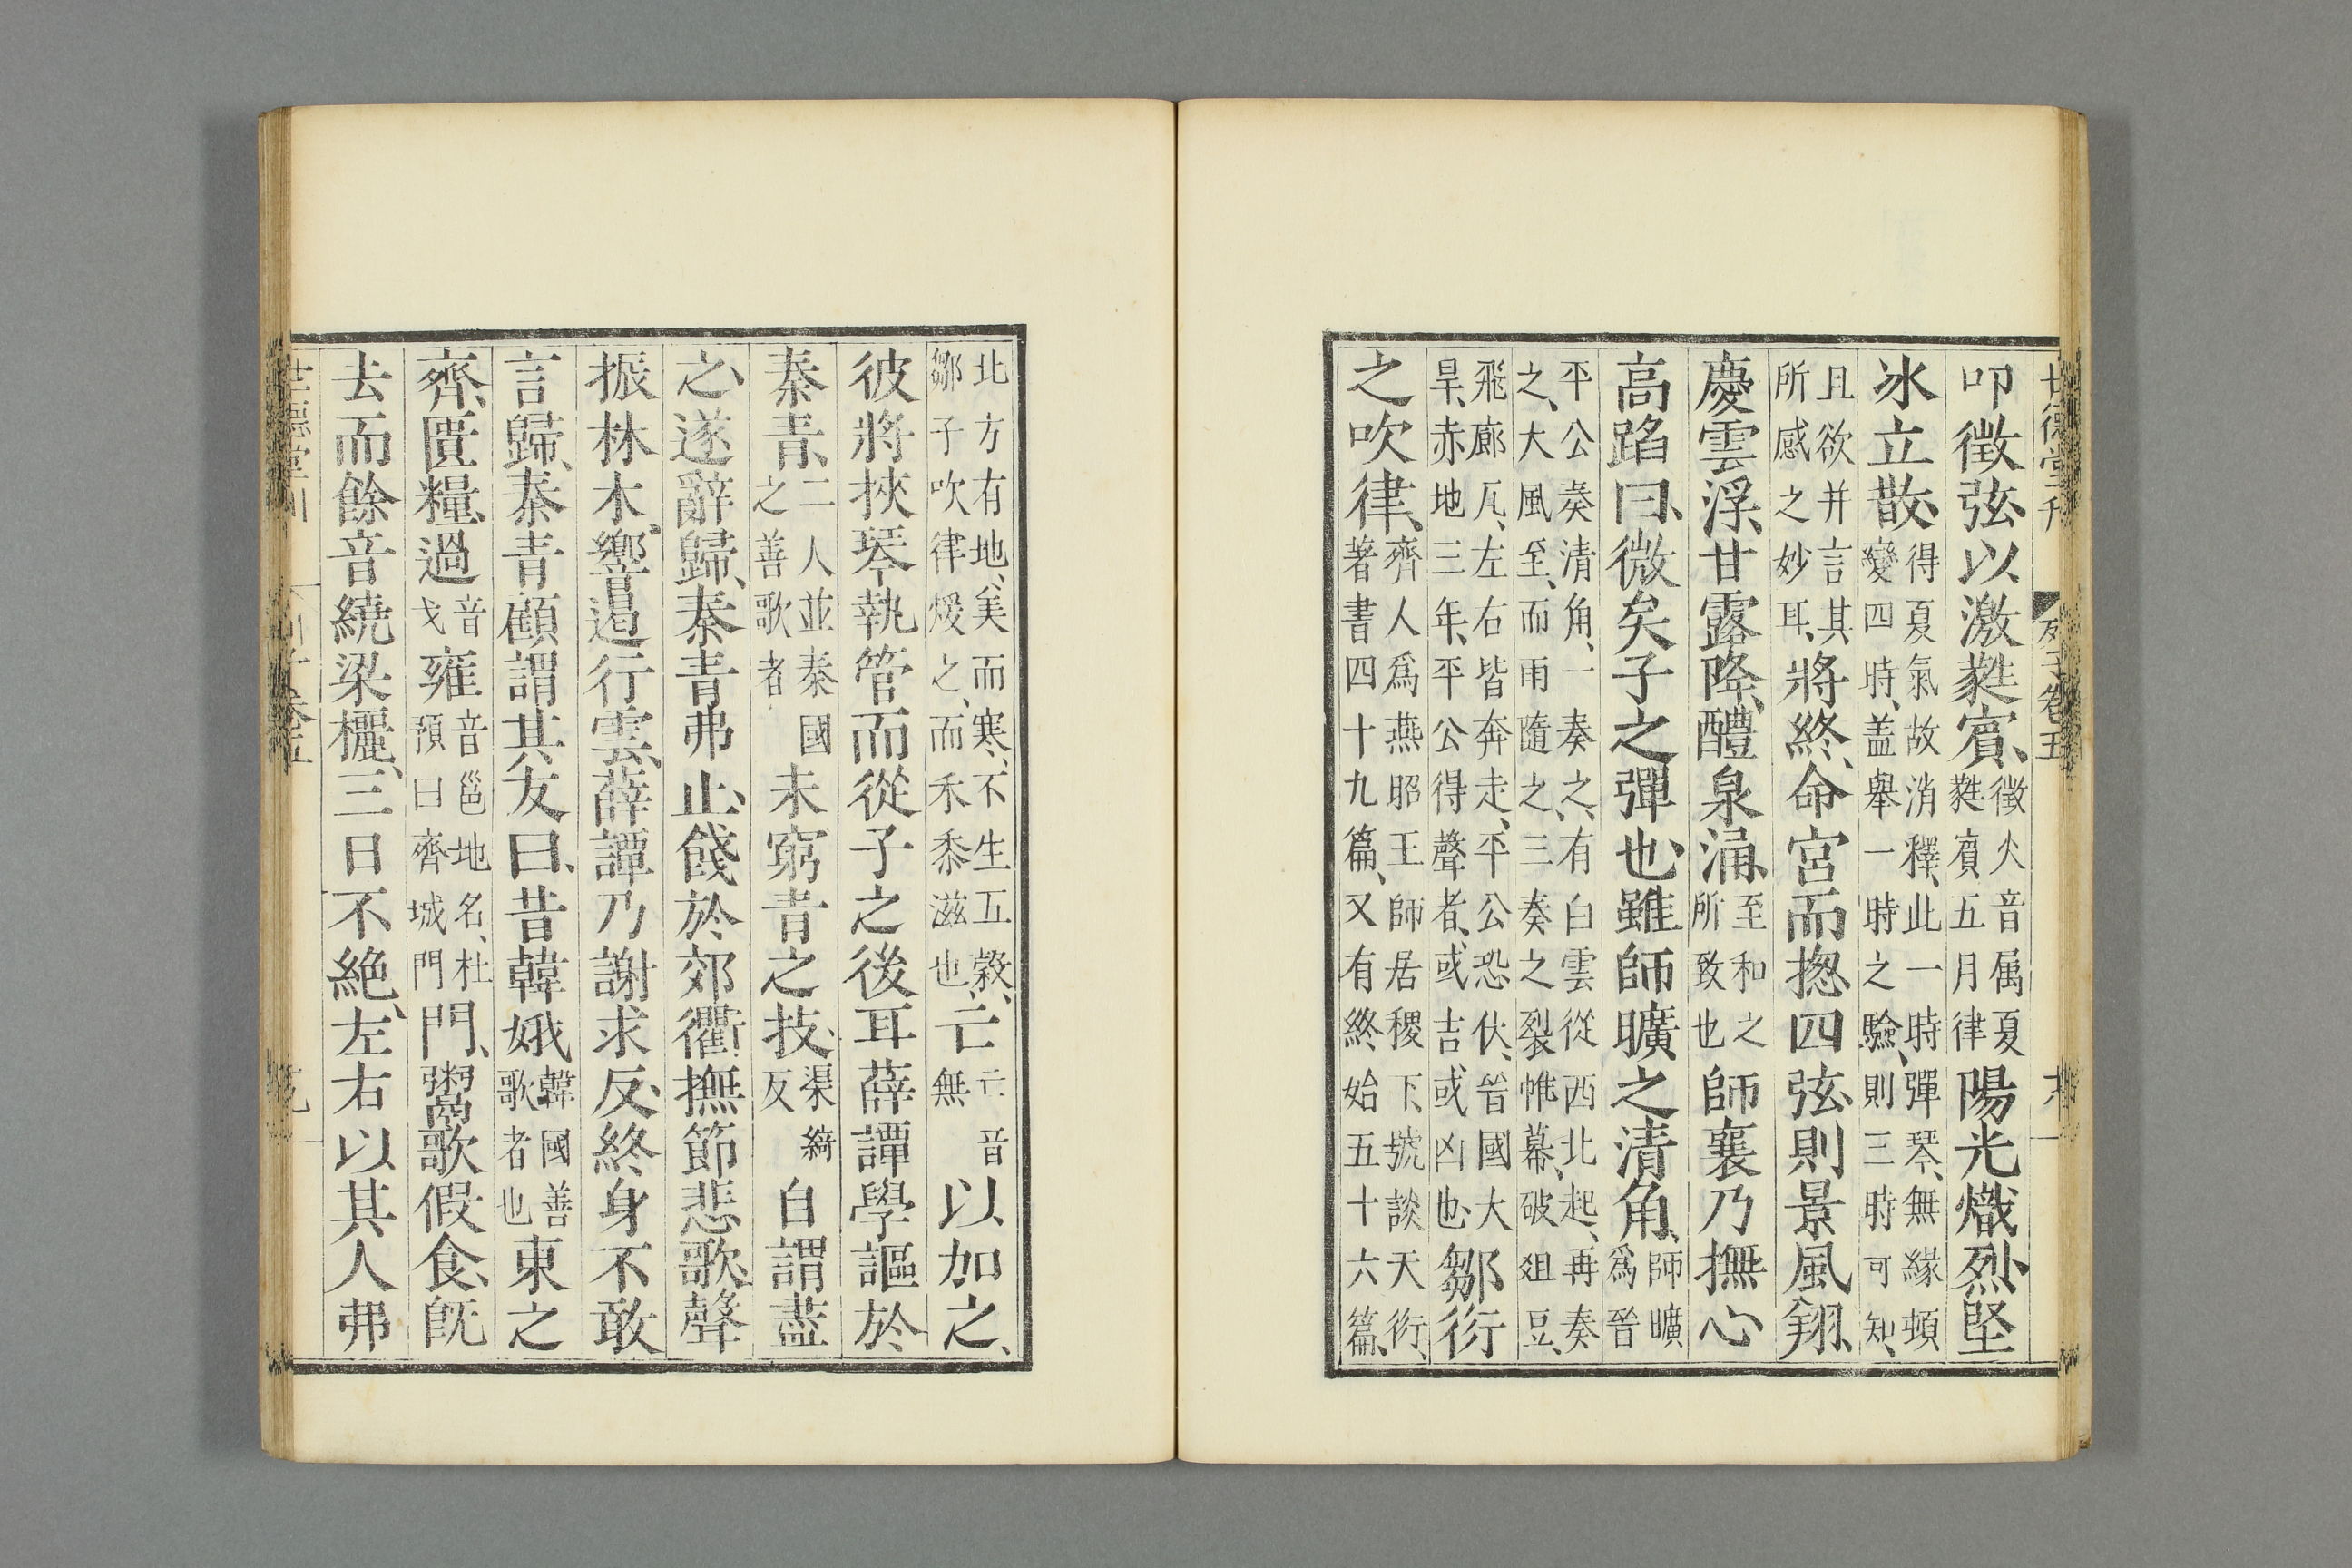 世德堂刊　列子卷五
叩徵弦以激蕤賓、徵火音属夏蕤賓五月律陽光熾烈堅
冰立散、得夏氣故消釋、此一時彈琴、無緣頓變四時、盖舉一時之驗、則三時可知、
且欲并言其所感之妙耳、將終、命宮而揔四弦則景風翔、
慶雲浮、甘露降、醴泉涌、至和之所致也師襄乃撫心
高蹈曰、微矣子之彈也、雖師曠之清角、師曠爲晉
平公奏清角、一奏之、有白雲從西北起、再奏之、大風至、而雨隨之、三奏之裂帷幕、破俎豆、
飛廊瓦、左右皆奔走、平公恐伏、晉國大旱、赤地三年、平公得聲者、或吉、或凶也、鄒衍
之吹律、齊人爲燕昭王師居稷下、號談天衍、著書四十九篇、又有終始五十六篇、
北方有地、美而寒、不生五榖、鄒子吹律煖之、而禾黍滋也、亡亡音無以加之、
彼將挾琴執管而從子之後耳薛譚學謳於
秦青、二人並秦國之善歌者未窮青之技、渠綺反自謂盡
之、遂辭歸、秦青弗止、餞於郊衢、撫節悲歌、聲
振林木、響遏行雲、薛譚乃謝求反、終身不敢
言歸、秦青顧謂其友曰、昔韓娥韓國善歌者也東之
齊、匱糧、過音戈雍音邕地名、杜預曰齊城門門、鬻歌假食、旣
去而餘音繞梁欐、三日不絶、左右以其人弗
世德堂刊　列子卷五